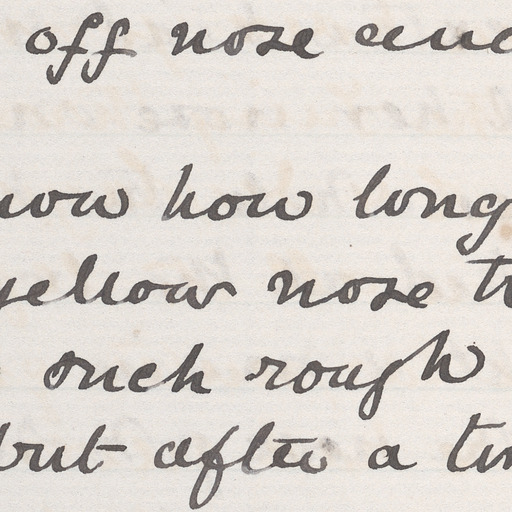 off nose and
now how long
yellow nose t
such rough
but after a tim